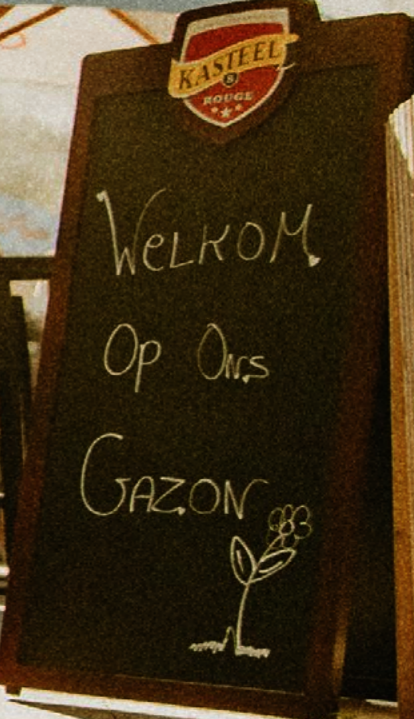 KASTEEL
8
ROUGE
WELKOM
Op Ons
GAZON